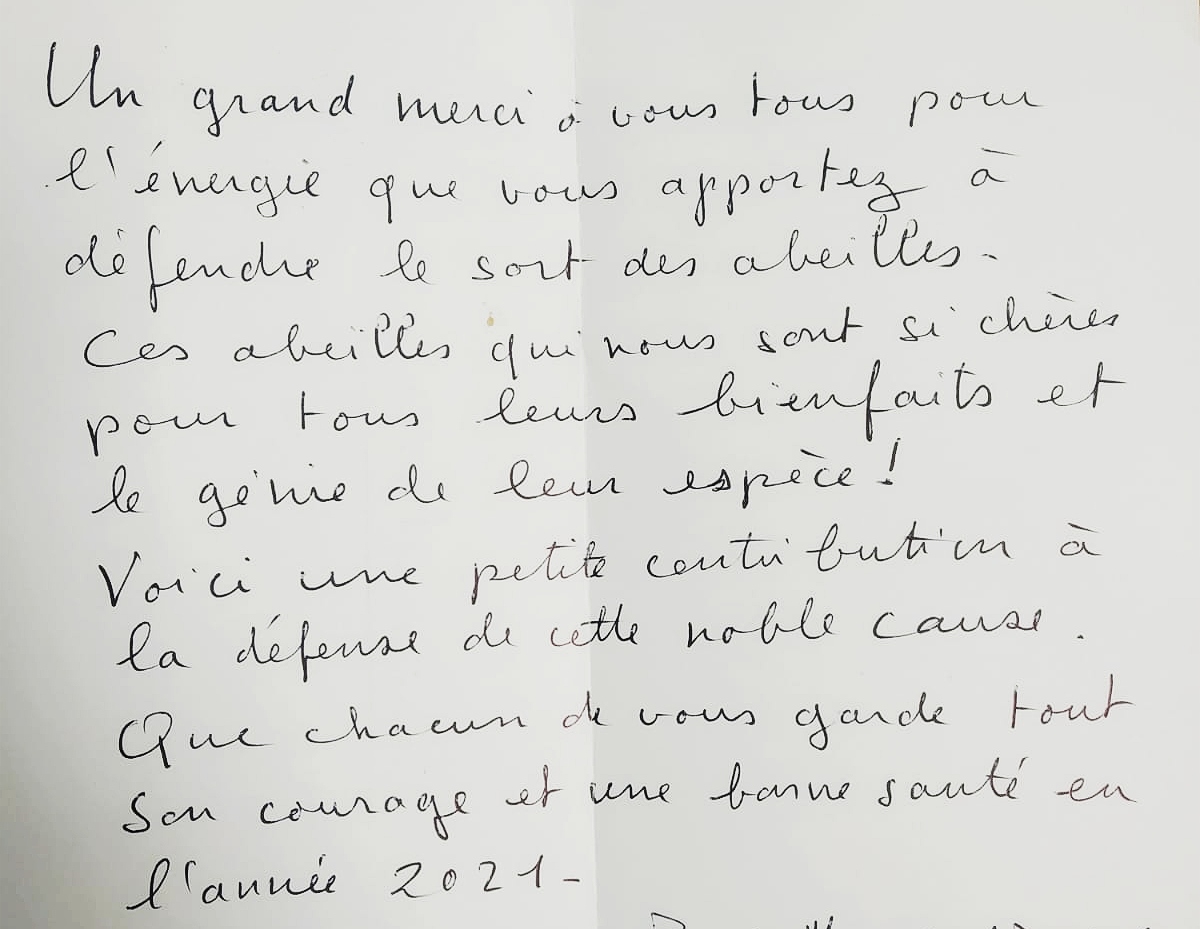 Un grand merci à vous tous pour
l'énergie que vous apportez à
défendre le sort des abeilles.
Ces abeilles qui nous sont si chères
pour tous leurs bienfaits et
le génie de leur espèce !
Voici une petite contribution à
la défense de cette noble cause.
Que chacun de vous garde tout
son courage et une bonne santé en
l'année 2021-